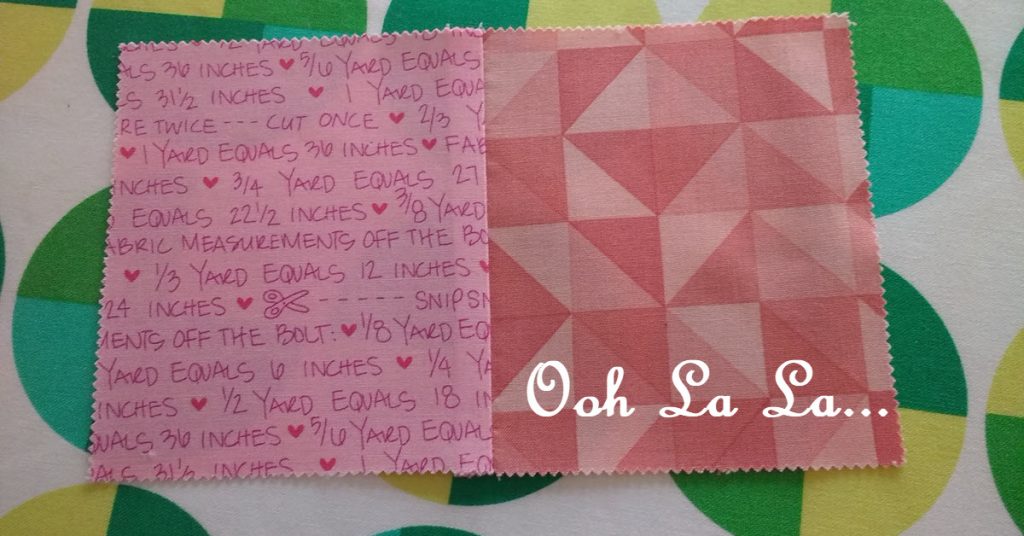 ALS 36 INCHES ♥ 5/6 YARD EQUALS
LS 31 1/2 INCHES ♥ 1 YARD EQUA
RE TWICE --- CUT ONCE ♥ 2/3 Y
♥ 1 YARD EQUALS 36 INCHES ♥ FAB
INCHES ♥ 3/4 YARD EQUALS 27
EQUALS 22 1/2 INCHES ♥ 3/8 YARD
ABRIC MEASUREMENTS OFF THE BO
♥ 1/3 YARD EQUALS 12 INCHES ♥
24 INCHES ♥ ----- SNIP SN
MENTS OFF THE BOLT: ♥ 1/8 YARD EQ
YARD EQUALS 6 INCHES ♥ 1/4 YA
INCHES ♥ 1/2 YARD EQUALS 18 IN
QUALS 36 INCHES ♥ 5/6 YARD EQUAL
ALS 31 1/2 INCHES ♥ 1 YARD EQ
Ooh La La...